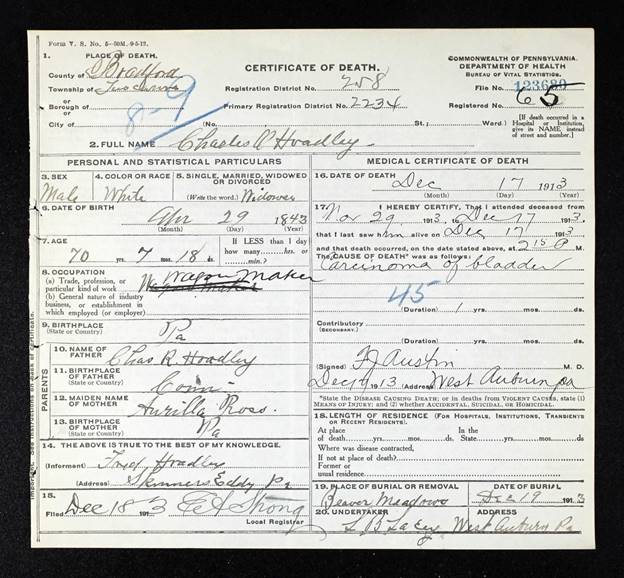 Form V. S. No. 5—50M. 9-5-12.
1. PLACE OF DEATH.
County of Bradford
Township of Tuscarora
or
Borough of
or
City of
8-9
CERTIFICATE OF DEATH.
Registration District No. 258
Primary Registration District No. 2234
(No. St.; Ward.)
COMMONWEALTH OF PENNSYLVANIA.
DEPARTMENT OF HEALTH
BUREAU OF VITAL STATISTICS.
File No. 123689
Registered No. 65
[If death occurred in a
Hospital or Institution,
give its NAME, instead
of street and number.]
2. FULL NAME Charles R Hoadley
PERSONAL AND STATISTICAL PARTICULARS
3. SEX
Male
4. COLOR OR RACE
White
5. SINGLE, MARRIED, WIDOWED
OR DIVORCED
(Write the word.) Widower
6. DATE OF BIRTH
Apr 29 1843
(Month) (Day) (Year)
7. AGE
70 yrs. 7 mos. 18 ds.
If LESS than 1 day
how many hrs. or
min.?
8. OCCUPATION
(a) Trade, profession, or
particular kind of work Wagon Maker
(b) General nature of industry
business, or establishment in
which employed (or employer)
9. BIRTHPLACE
(State or Country) Pa
PARENTS
10. NAME OF
FATHER Chas R. Hoadley
11. BIRTHPLACE
OF FATHER
(State or Country) Conn
12. MAIDEN NAME
OF MOTHER Aurilla Ross
13. BIRTHPLACE
OF MOTHER
(State or Country) Pa
14. THE ABOVE IS TRUE TO THE BEST OF MY KNOWLEDGE.
(Informant) Fred Hoadley
(Address) Skinners Eddy Pa
15.
Filed Dec 18 1913 Strong
Local Registrar
MEDICAL CERTIFICATE OF DEATH
16. DATE OF DEATH
Dec 17 1913
(Month) (Day) (Year)
17. I HEREBY CERTIFY, That I attended deceased from
Nov 29 1913, to Dec 17 1913.
that I last saw him alive on Dec 17 1913
and that death occurred, on the date stated above, at 2 15 P M.
The CAUSE OF DEATH* was as follows:
Carcinoma of bladder
45
(Duration) 1 yrs. mos. ds.
Contributory
(SECONDARY.)
(Duration) yrs. mos. ds.
(Signed) Austin M. D.
1913 (Address) West Auburn Pa
*State the DISEASE CAUSING DEATH; or, in deaths from VIOLENT CAUSES, state (1)
MEANS OF INJURY; and (2) whether ACCIDENTAL, SUICIDAL, or HOMICIDAL.
18. LENGTH OF RESIDENCE (FOR HOSPITALS, INSTITUTIONS, TRANSIENTS
OR RECENT RESIDENTS).
At place In the
of death yrs. mos. ds. State yrs. mos. ds.
Where was disease contracted,
If not at place of death?
Former or
usual residence
19. PLACE OF BURIAL OR REMOVAL
Beaver Meadows
DATE OF BURIAL
Dec 19 1913
20. UNDERTAKER
L B Lacey
ADDRESS
West Auburn Pa